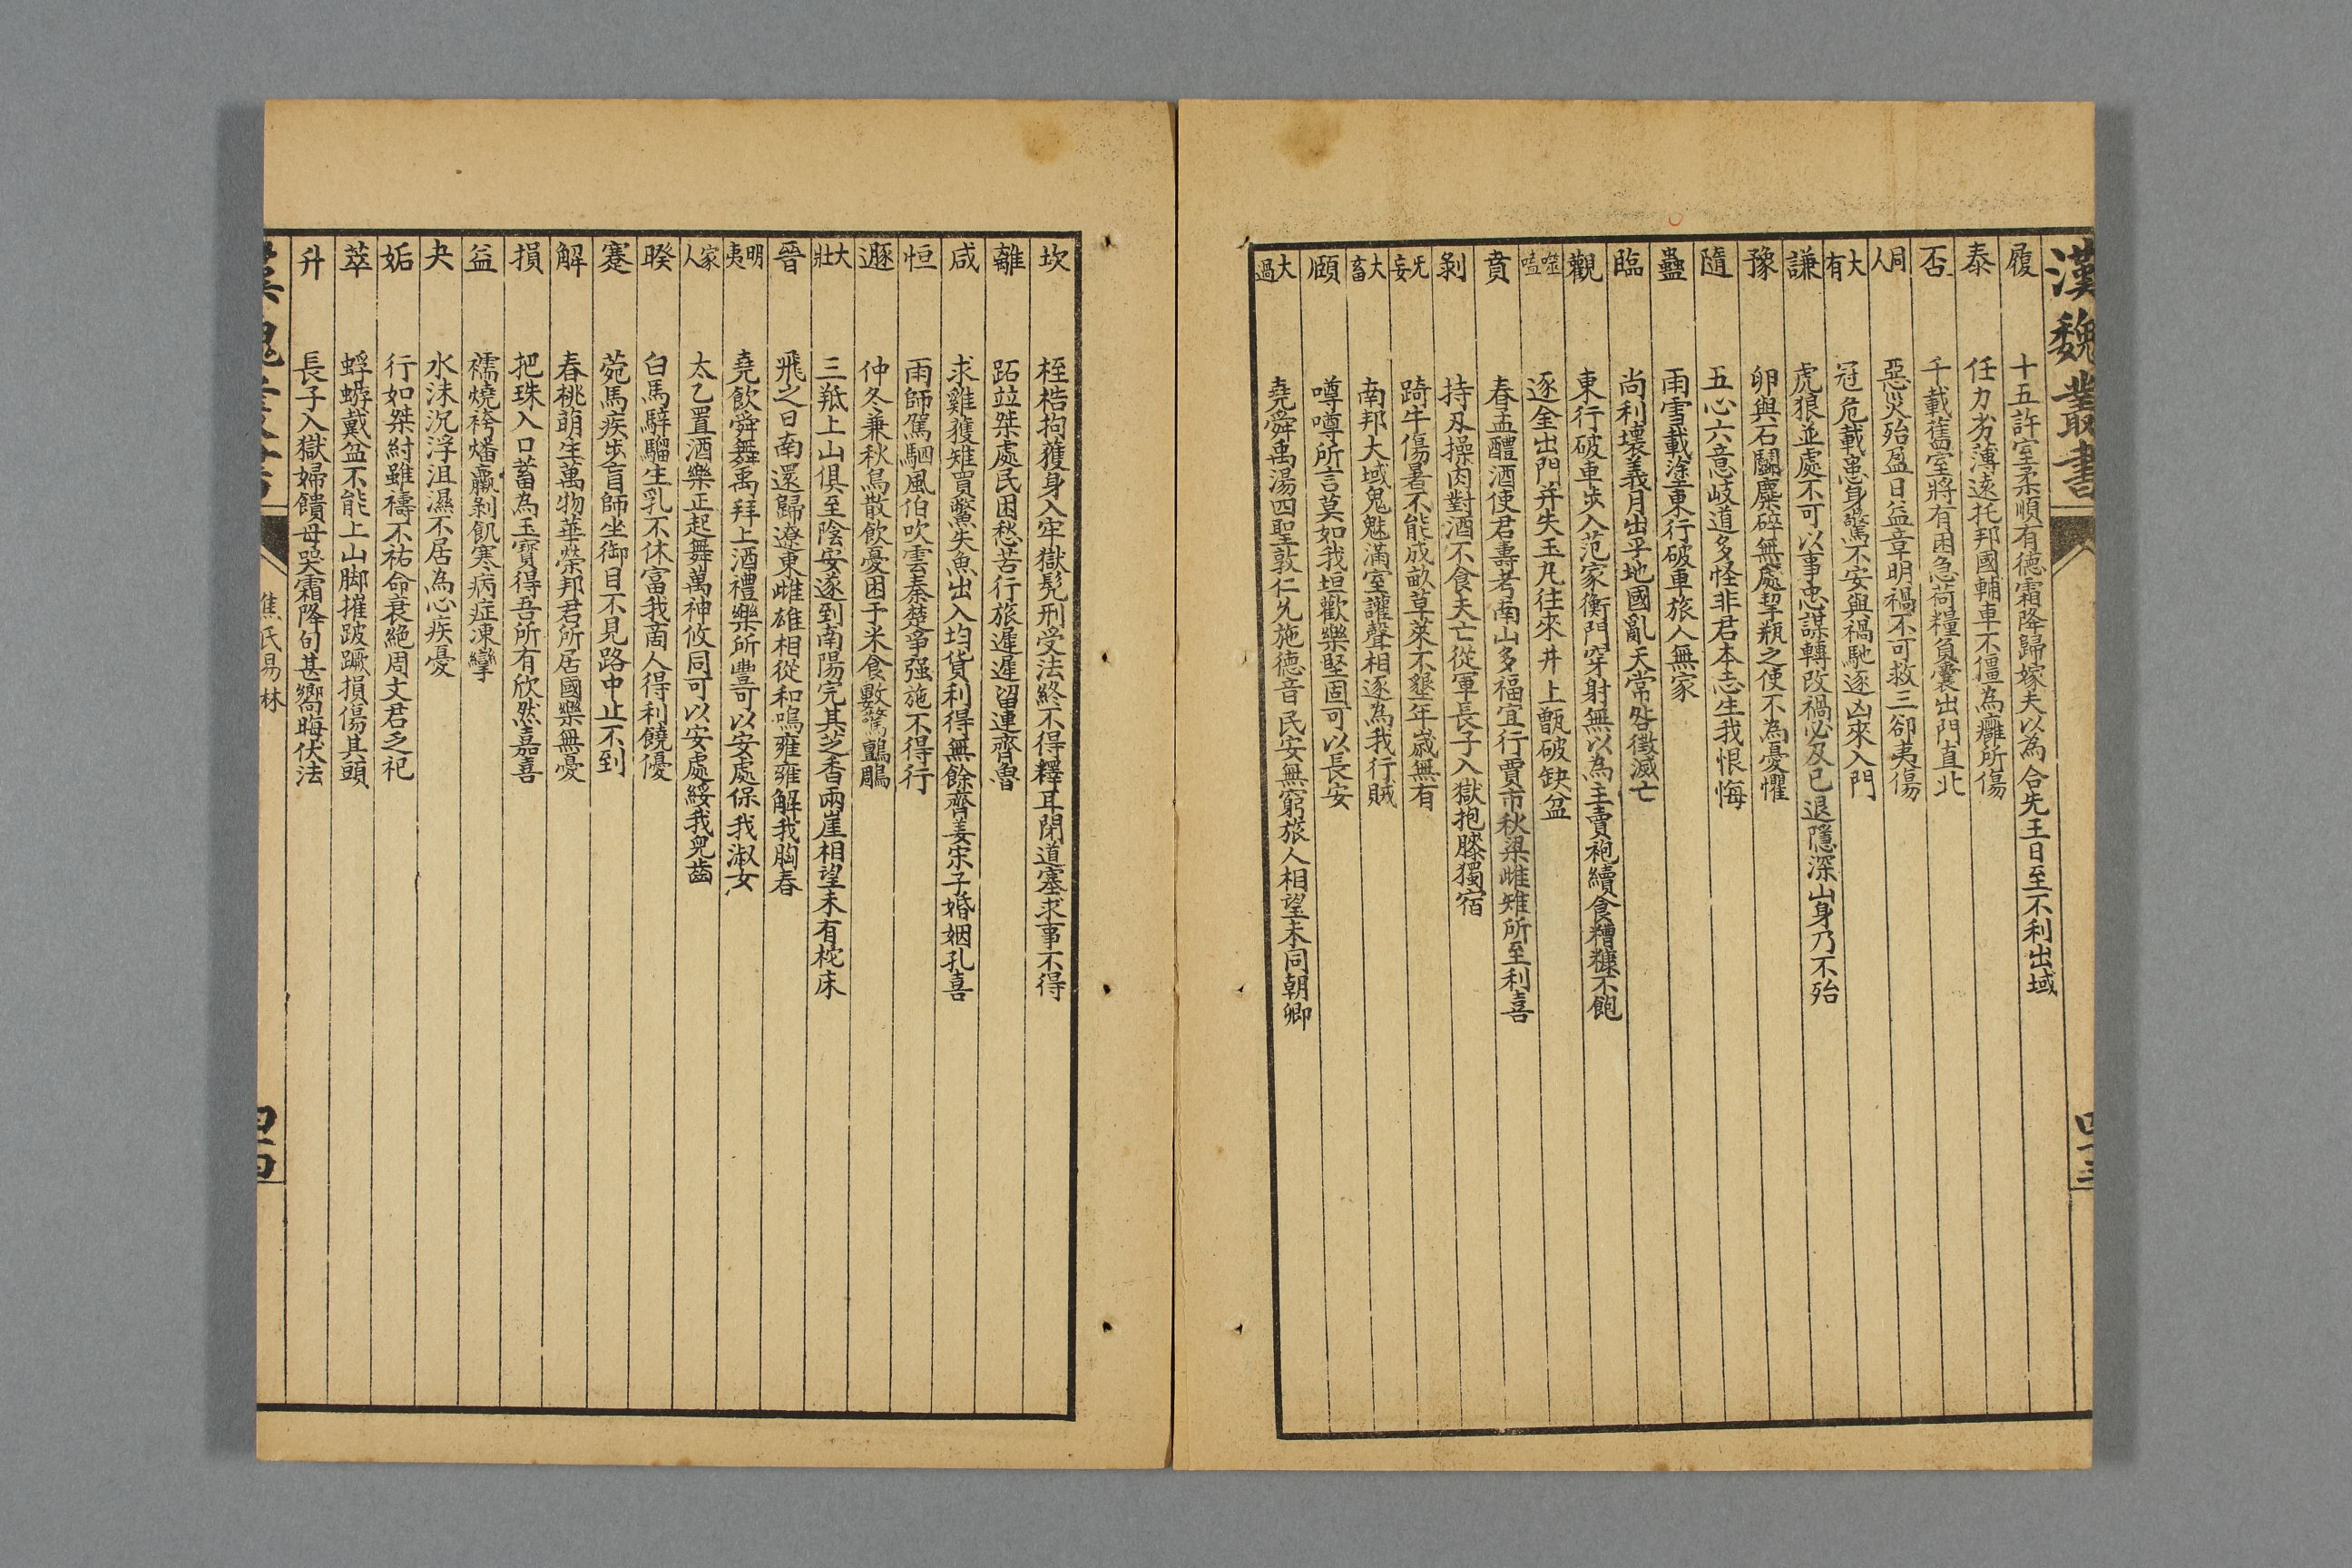 漢魏叢書
履 十五許室柔順有德霜降歸嫁夫以為合先王日至不利出域
泰 任力劣薄遠托邦國輔車不僵為癰所傷
否 千載舊室將有困急荷糧負囊出門直北
同人 惡災殆盈日益章明禍不可救三郤夷傷
大有 冠危戴患身驚不安與禍馳逐凶來入門
謙 虎狼並處不可以事忠謀轉改禍必及己退隱深山身乃不殆
豫 卵與石鬬麋碎無處挈瓶之使不為憂懼
隨 五心六意岐道多怪非君本志生我恨悔
蠱 雨雪載塗東行破車旅人無家
臨 尚利壞義月出乎地國亂天常咎徵滅亡
觀 東行破車步入范家衡門穿射無以為主賣袍續食糟糠不飽
噬嗑 逐金出門并失玉凡往來井上甑破缺盆
賁 春孟醴酒使君壽考南山多福宜行賈市秋梁雌雉所至利喜
剝 持刄操肉對酒不食夫亡從軍長子入獄抱膝獨宿
无妄 踦牛傷暑不能成畝草萊不墾年歲無有
大畜 南邦大域鬼魅滿室讙聲相逐為我行賊
頤 噂噂所言莫如我垣歡樂堅固可以長安
大過 堯舜禹湯四聖敦仁允施德音民安無窮旅人相望未同朝卿
坎 桎梏拘獲身入牢獄髡刑受法終不得釋耳閉道塞求事不得
離 跖竝桀處民困愁苦行旅遲遲留連齊魯
咸 求雞獲雉買鱉失魚出入均貨利得無餘齊姜宋子婚姻孔喜
恒 雨師駕駟風伯吹雲秦楚爭强施不得行
遯 仲冬兼秋鳥散飲憂困于米食數驚鸇鵰
大壯 三羝上山俱至陰安遂到南陽完其芝香兩崖相望未有枕床
晉 飛之日南還歸遼東雌雄相從和鳴雍雍解我胸春
明夷 堯飲舜舞禹拜上酒禮樂所豐可以安處保我淑女
家人 太乙置酒樂正起舞萬神攸同可以安處綏我兒齒
睽 白馬騂騮生乳不休富我商人得利饒優
蹇 菀馬疾步盲師坐御目不見路中止不到
解 春桃萌生萬物華榮邦君所居國樂無憂
損 把珠入口蓄為玉寶得吾所有欣然嘉喜
益 襦燒袴燔羸剝飢寒病症凍攣
夬 水沫沉浮沮濕不居為心疾憂
姤 行如桀紂雖禱不祐命衰絕周文君乏祀
萃 蜉蝣戴盆不能上山脚摧跛蹶損傷其頭
升 長子入獄婦饋母哭霜降旬甚嚮晦伏法
焦氏易林